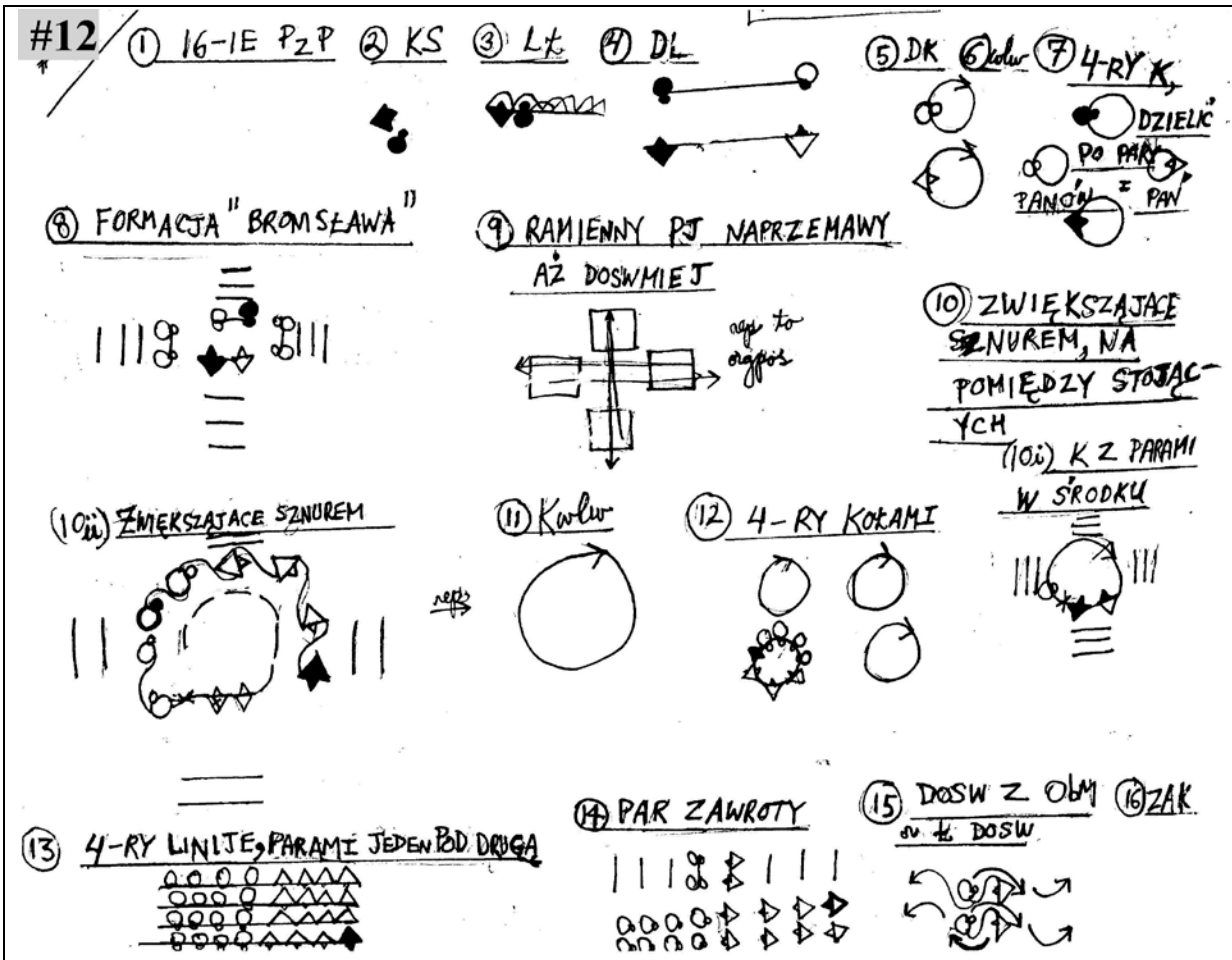 #12
① 16-IE PZP ② KS ③ LŁ ④ DL
⑤ DK ⑥ ⑦ 4-RY K,
DZIELIĆ
PO PARY
PANÓW I PAŃ
⑧ FORMACJA "BROMSŁAWA"
⑨ RAMIENNY PJ NAPRZEMAWY
AŻ DOSWMIEJ
to
⑩ ZWIĘKSZAJĄCE
SZNUREM, NA
POMIĘDZY STOJĄC-
YCH
(10i) K Z PARAMI
W ŚRODKU
(10ii) ZWIĘKSZAJĄCE SZNUREM
⑪ Kolw
⑫ 4-RY KOŁAMI
⑬ 4-RY LINIJE, PARAMI JEDEN POD DRUGĄ
⑭ PAR ZAWROTY
⑮ DOSW Z ObM ⑯ ZAK
DOSW